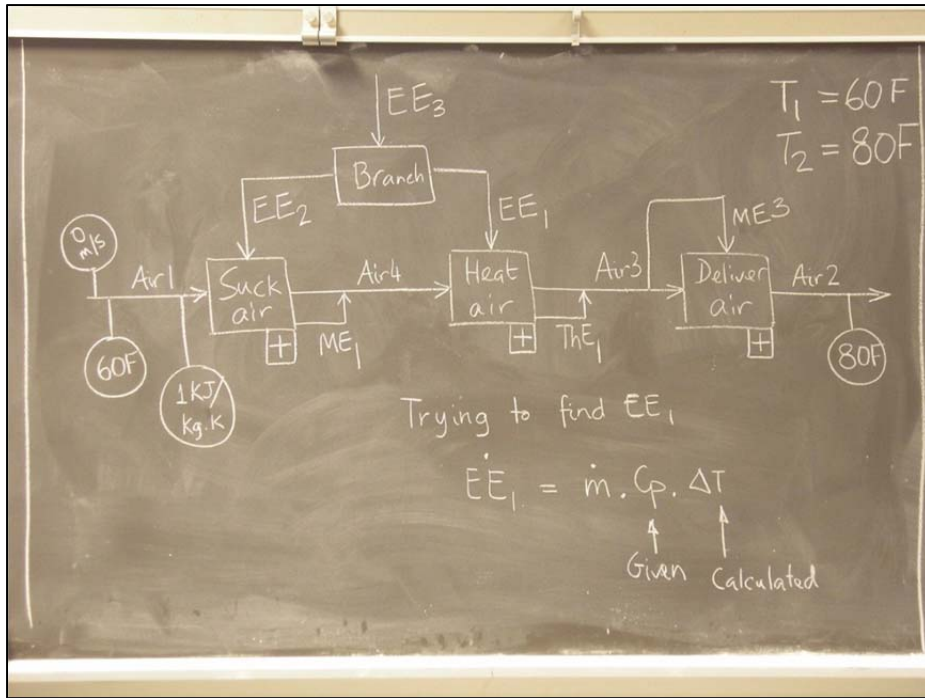 T₁ = 60F
T₂ = 80F
EE₃
Branch
EE₂
EE₁
ME3
0 m/s
Air1
Suck air
Air4
Heat air
Air3
Deliver air
Air2
+
ME₁
+
ThE₁
+
60F
1KJ/
kg.K
80F
Trying to find EE₁
ĖE₁ = ṁ . Cp . ΔT
Given
Calculated